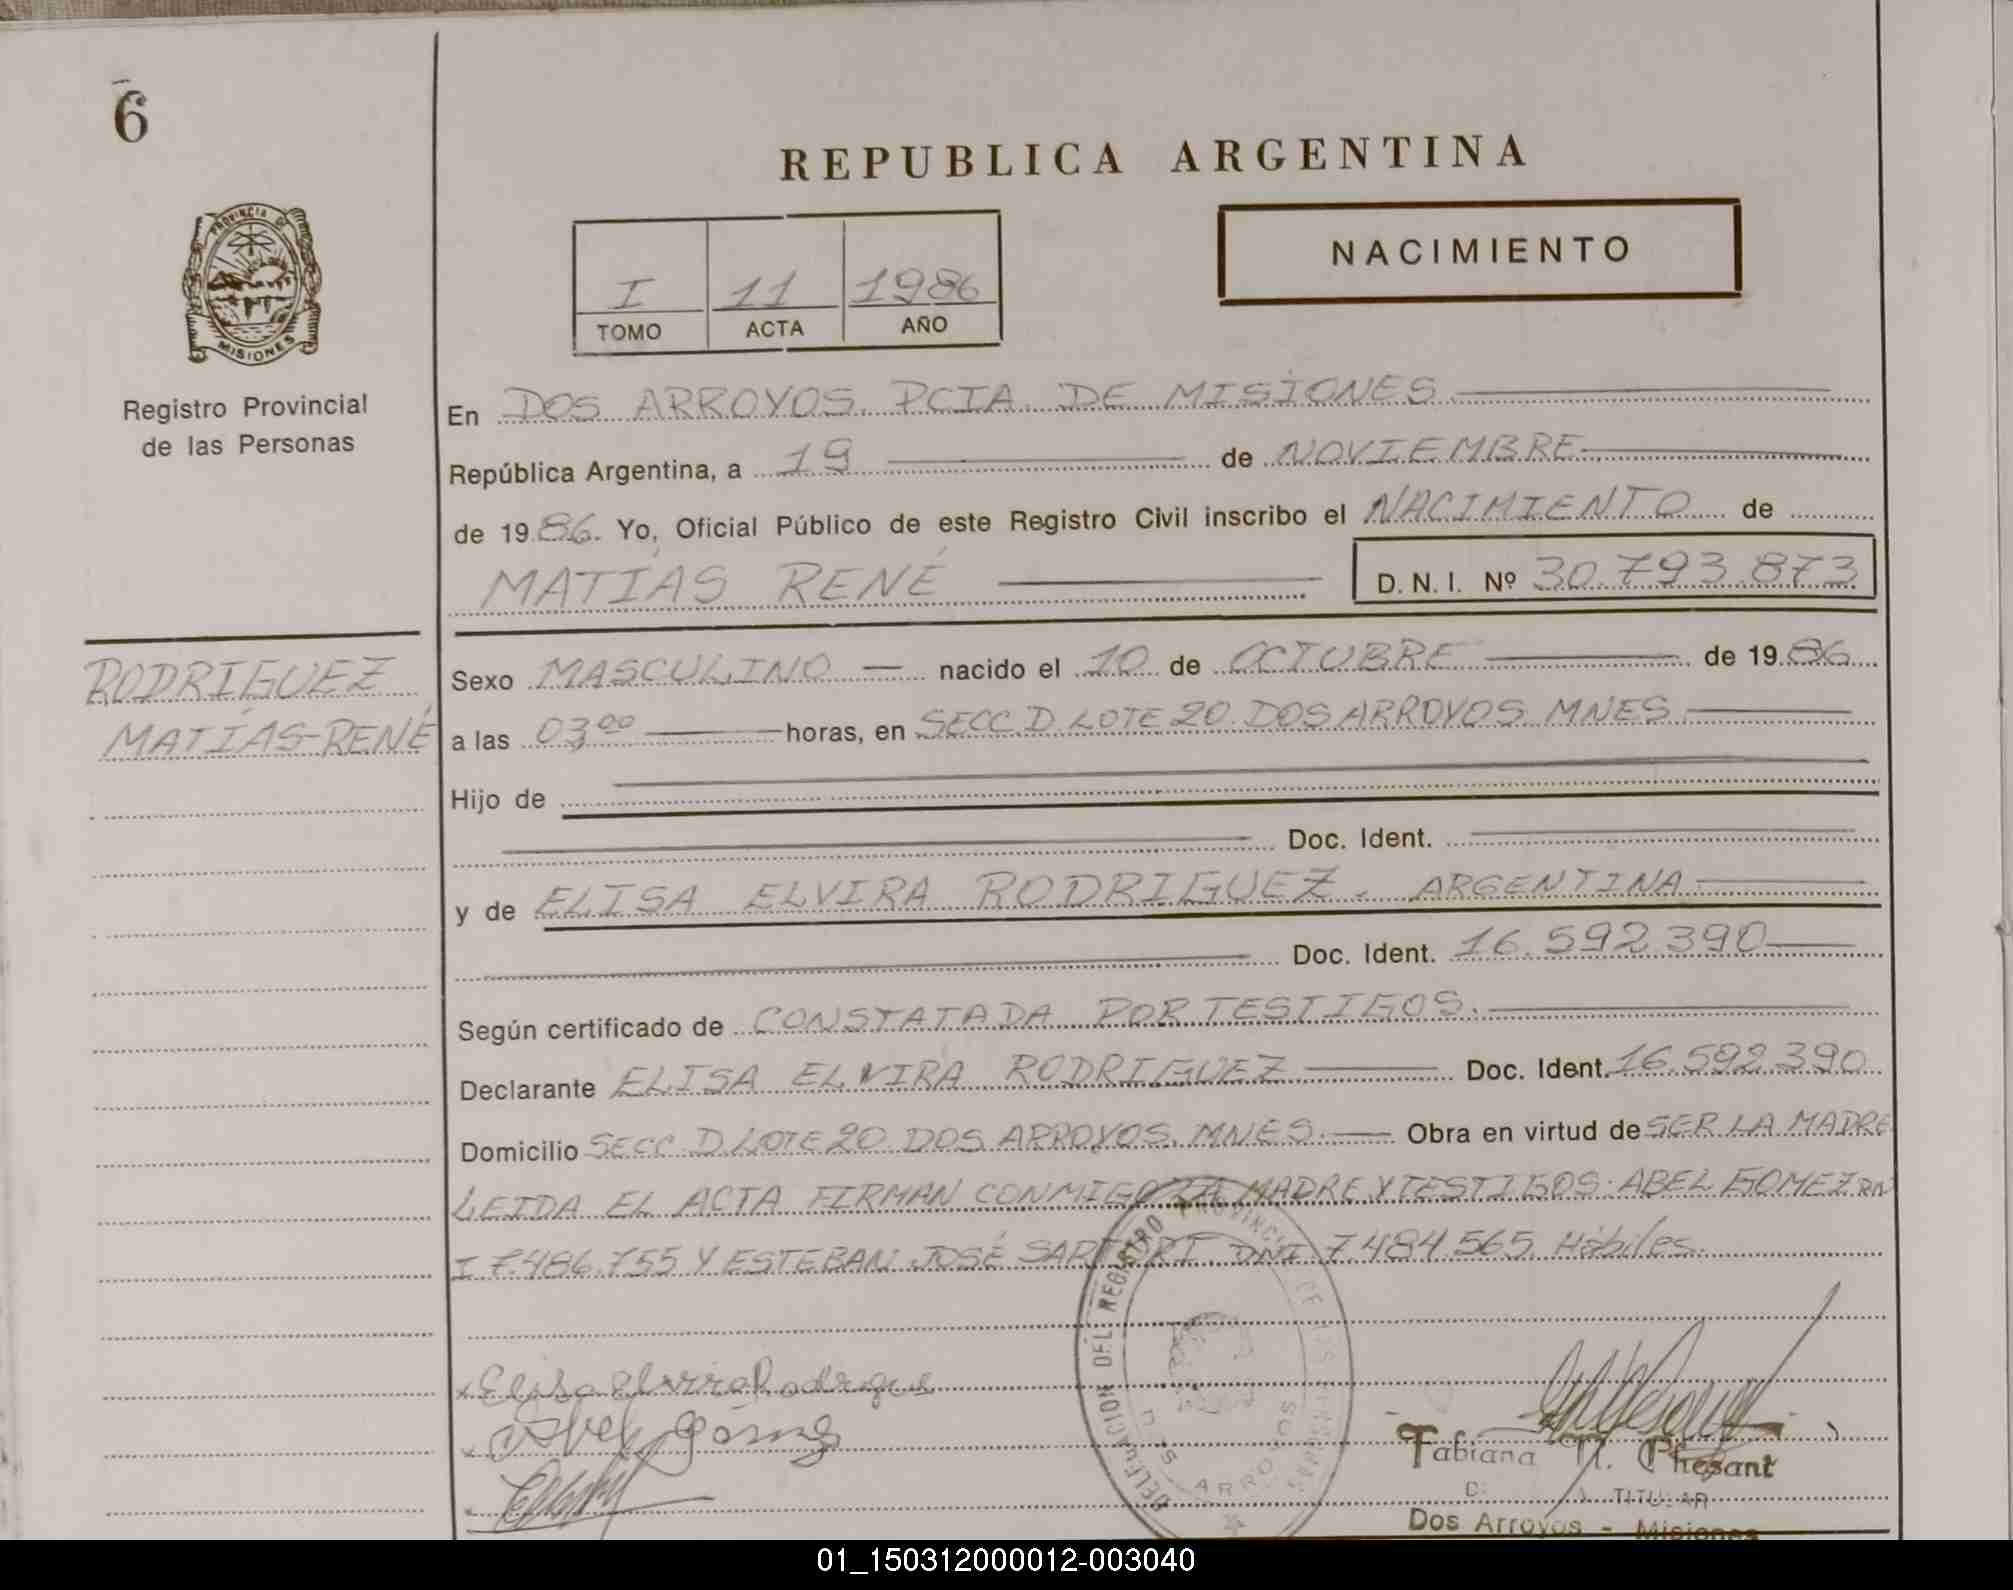 6
REPUBLICA ARGENTINA
NACIMIENTO
I 11 1986
TOMO ACTA AÑO
PROVINCIA DE
MISIONES
Registro Provincial
de las Personas
En DOS ARROYOS. PCIA. DE MISIONES
República Argentina, a 19 de NOVIEMBRE
de 1986. Yo, Oficial Público de este Registro Civil inscribo el NACIMIENTO de
MATÍAS RENÉ D. N. I. Nº 30.793.873
RODRIGUEZ
MATÍAS-RENÉ
Sexo MASCULINO nacido el 10 de OCTUBRE de 1986
a las 03⁰⁰ horas, en SECC. D. LOTE 20. DOS ARROYOS. MNES.
Hijo de
Doc. Ident.
y de ELISA ELVIRA RODRIGUEZ. ARGENTINA.
Doc. Ident. 16.592.390
Según certificado de CONSTATADA POR TESTIGOS.
Declarante ELISA ELVIRA RODRIGUEZ Doc. Ident. 16.592.390
Domicilio SECC. D. LOTE 20. DOS ARROYOS. MNES. Obra en virtud de SER LA MADRE
LEIDA EL ACTA FIRMAN CONMIGO LA MADRE Y TESTIGOS: ABEL GOMEZ DN
I 7.486.755 Y ESTEBAN JOSÉ SARTORI. DNI 7.484.565. Hábiles.
DELEGACION DEL REGISTRO PROVINCIAL DE LAS PERSONAS
DOS ARROYOS
Elisa Elvira Rodrigue
Abel Gómez
Fabiana N. Phesant
TITULAR
Dos Arroyos - Misiones
01_150312000012-003040